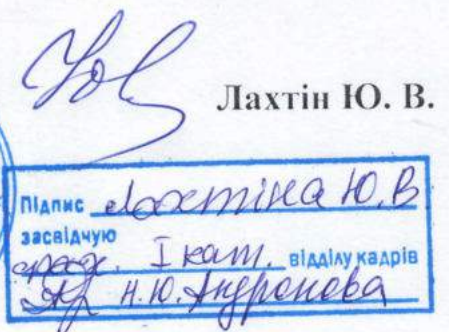 Лахтін Ю. В.
Підпис Лахтіна Ю.В
засвідчую
фах. І кат. відділу кадрів
Н.Ю. Андронова